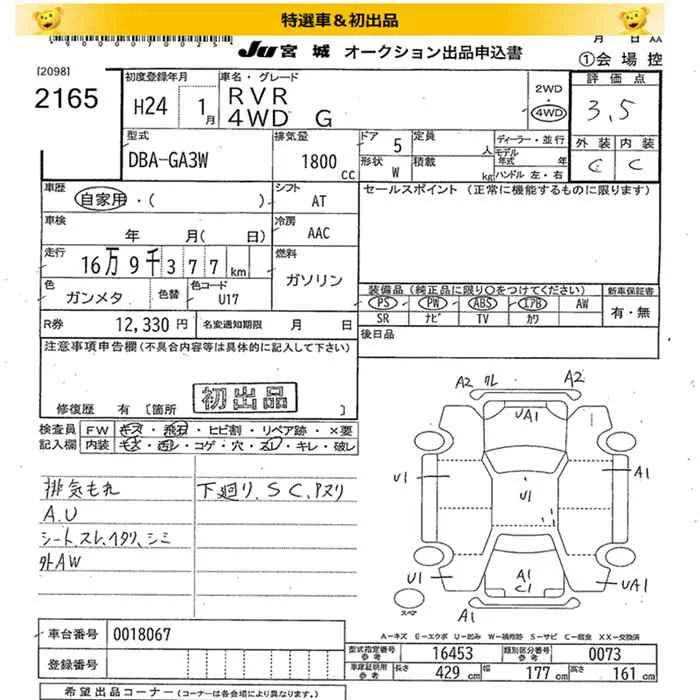 特選車＆初出品
JU宮城 オークション出品申込書
月 日
①会場控
[2098]
2165
初度登録年月
H24 1月
車名・グレード
RVR
4WD G
2WD
4WD
評価点
3.5
外装 内装
C C
型式
DBA-GA3W
排気量
1800cc
ドア 5
定員 人
形状 W
積載 kg
ディーラー・並行
モデル年式 年
ハンドル 左・右
車歴
自家用・( )
シフト
AT
セールスポイント (正常に機能するものに限ります)
車検
年 月( 日)
冷房
AAC
走行
16万9千377km
燃料
ガソリン
色
ガンメタ
色替
色コード
U17
装備品 (純正品に限り○をつけてください)
PS PW ABS エアB AW
SR ナビ TV カワ
新車保証書
有・無
R券 12,330円
名変通知期限 月 日
後日品
注意事項申告欄(不具合内容等は具体的に記入して下さい)
初出品
修復歴 有 [箇所 ]
検査員記入欄
FW キズ・飛石・ヒビ割・リペア跡・×要
内装 キズ・汚レ・コゲ・穴・スレ・キレ・破レ
排気もれ
下廻り、SC、アヌリ
A.U
シート、スレ、ヘタリ、シミ
外AW
A2 クレ A2
UA1
U1 U1 A1
A1
C1
UA1
スペア
A1
A-キズ E-エクボ U-凹み W-補修跡 S-サビ C-腐食 XX-交換済
車台番号 0018067
登録番号
型式指定番号参考 16453
類別区分番号参考 0073
車庫証明用参考 長さ 429cm 幅 177cm 高さ 161cm
希望出品コーナー(コーナーは各会場により異なります。)